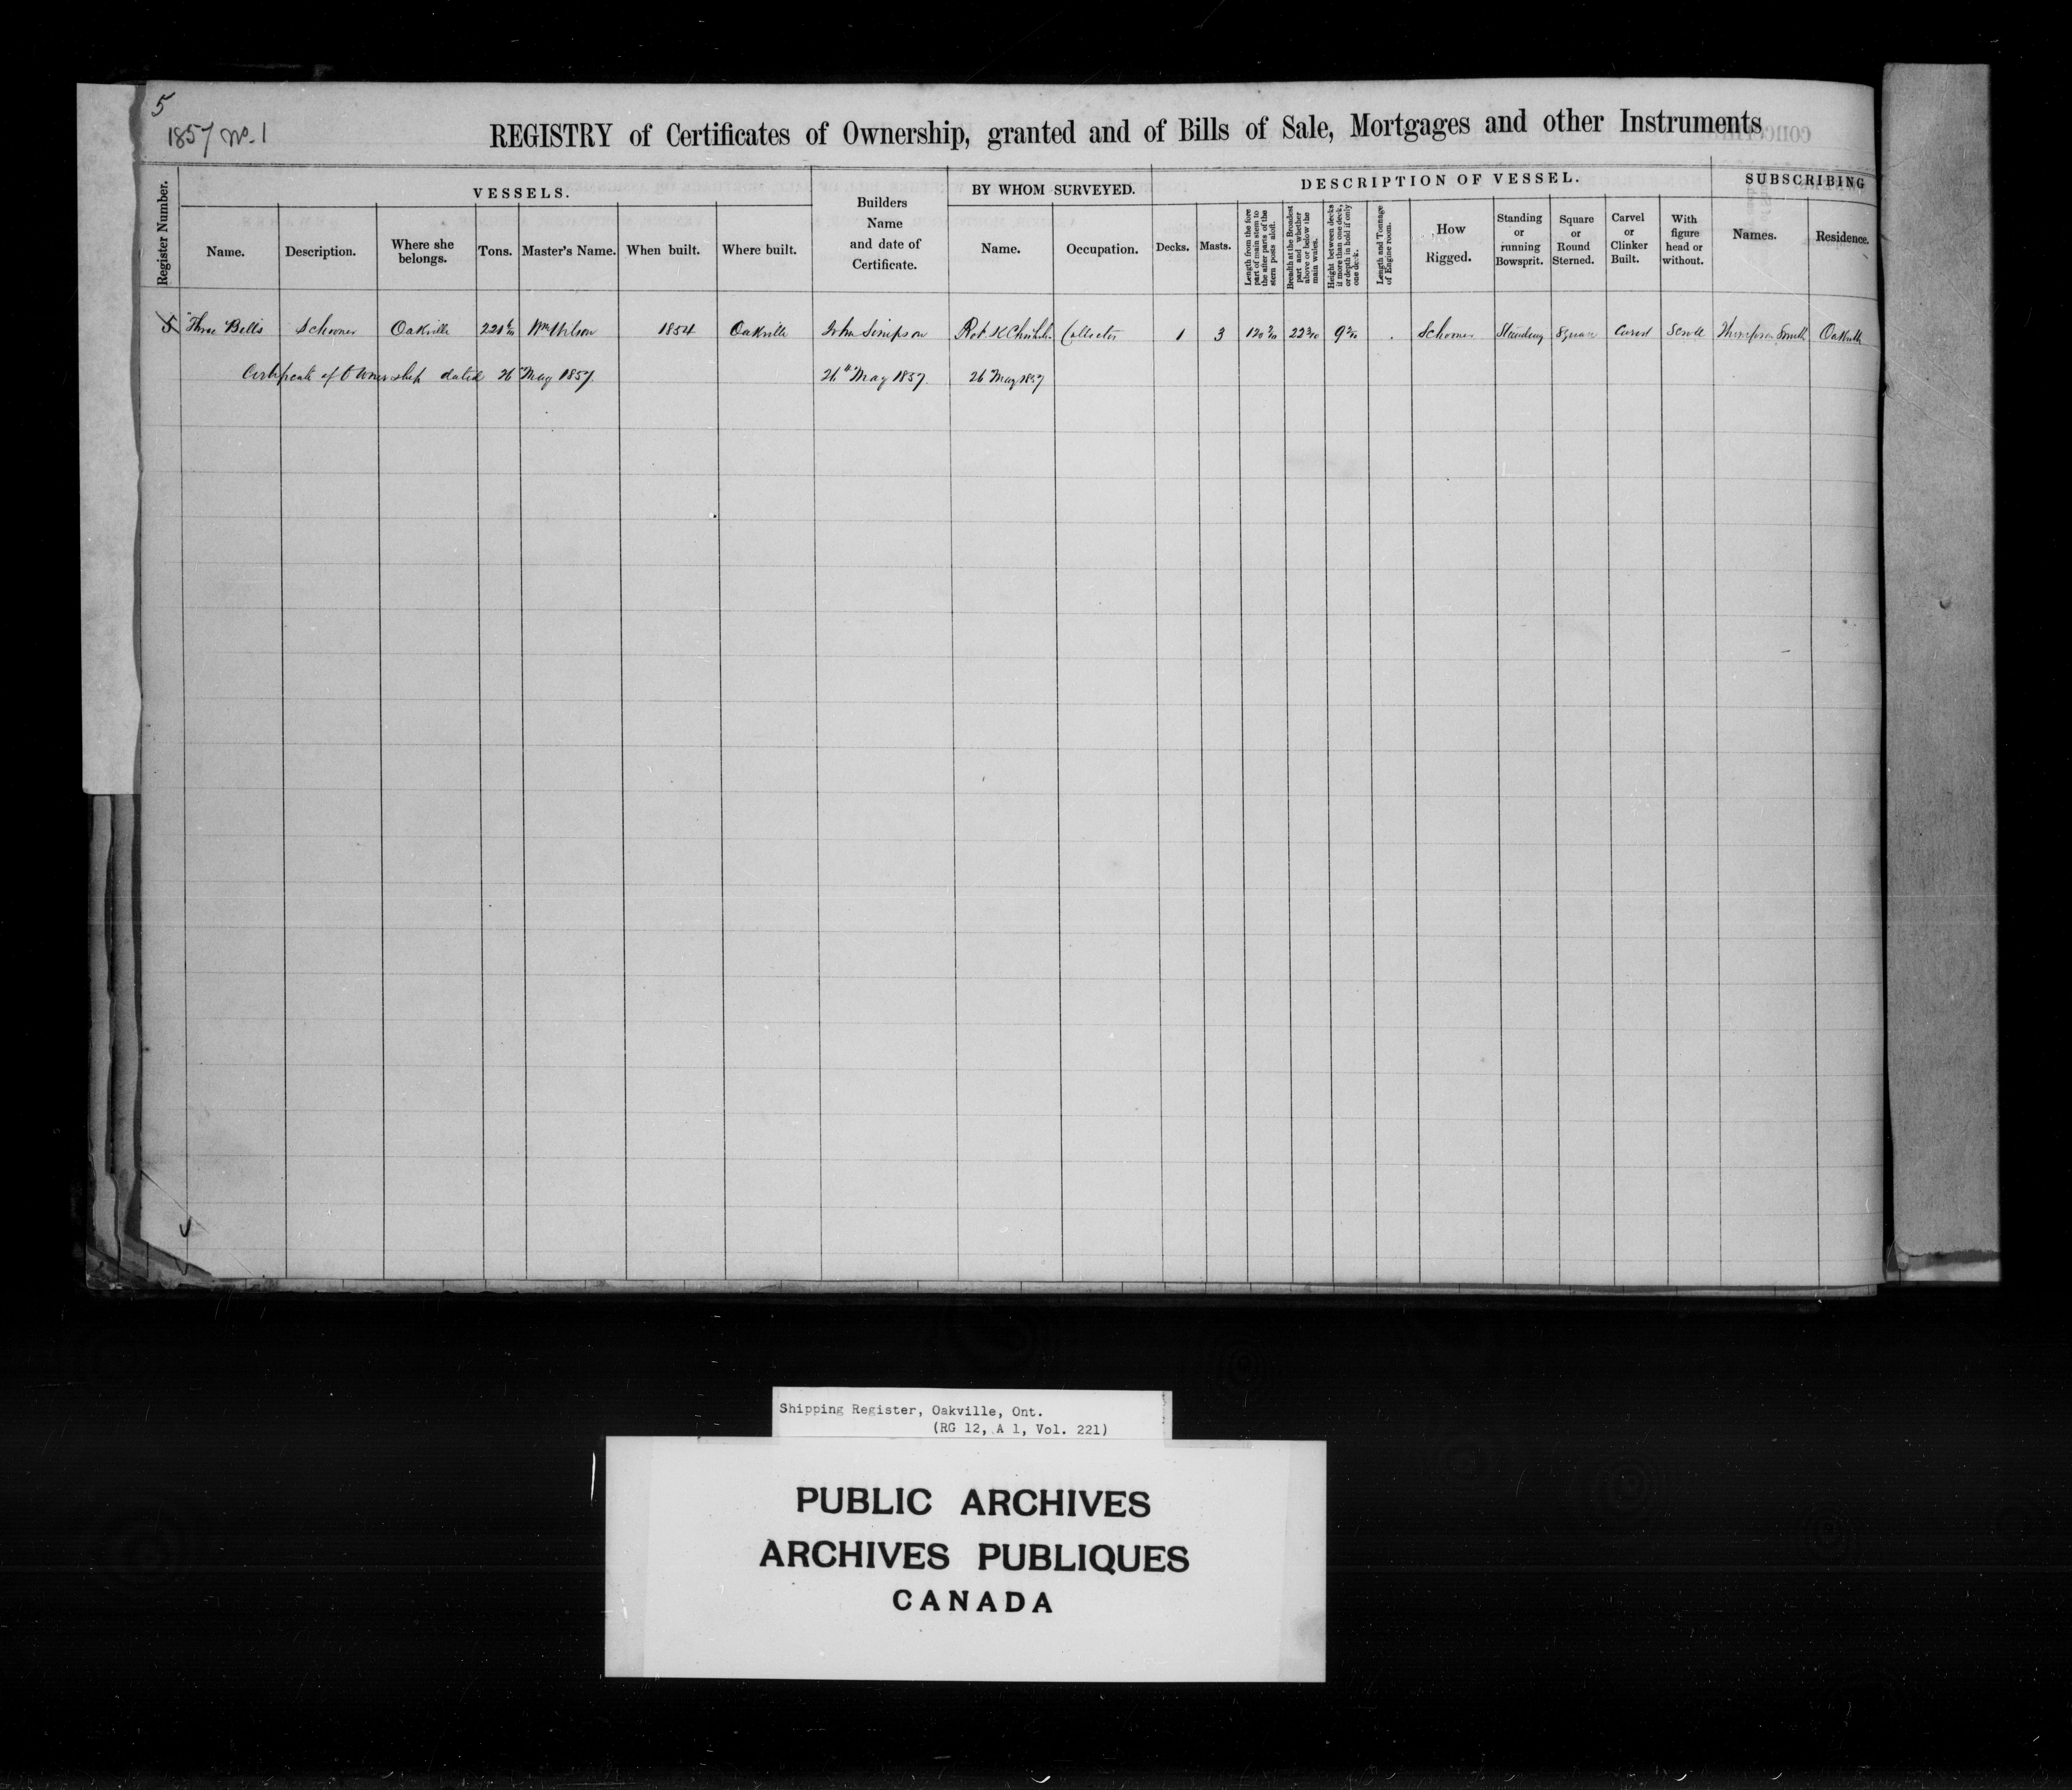 5
1857 No. 1
REGISTRY of Certificates of Ownership, granted and of Bills of Sale, Mortgages and other Instruments
Register Number.
VESSELS.
Name.
Description.
Where she belongs.
Tons.
Master's Name.
When built.
Where built.
Builders Name and date of Certificate.
BY WHOM SURVEYED.
Name.
Occupation.
DESCRIPTION OF VESSEL.
Decks.
Masts.
Length from the fore part of main stem to the after parts of the stern posts aloft.
Breadth at the Broadest part and whether above or below the main wales.
Height between decks if more than one deck, or depth in hold if only one deck.
Length and Tonnage of Engine room.
How Rigged.
Standing or running Bowsprit.
Square or Round Sterned.
Carvel or Clinker Built.
With figure head or without.
SUBSCRIBING
Names.
Residence.
5 Three Bells Schooner Oakville Wm Wilson 1854 Oakville John Simpson Rob. K Chisholm Collector 1 3 Schooner Standing Square Carvel Scroll Thompson Smith Oakville
Certificate of Ownership dated 26 May 1857 26th May 1857. 26 May 1857
Shipping Register, Oakville, Ont.
(RG 12, A 1, Vol. 221)
PUBLIC ARCHIVES
ARCHIVES PUBLIQUES
CANADA